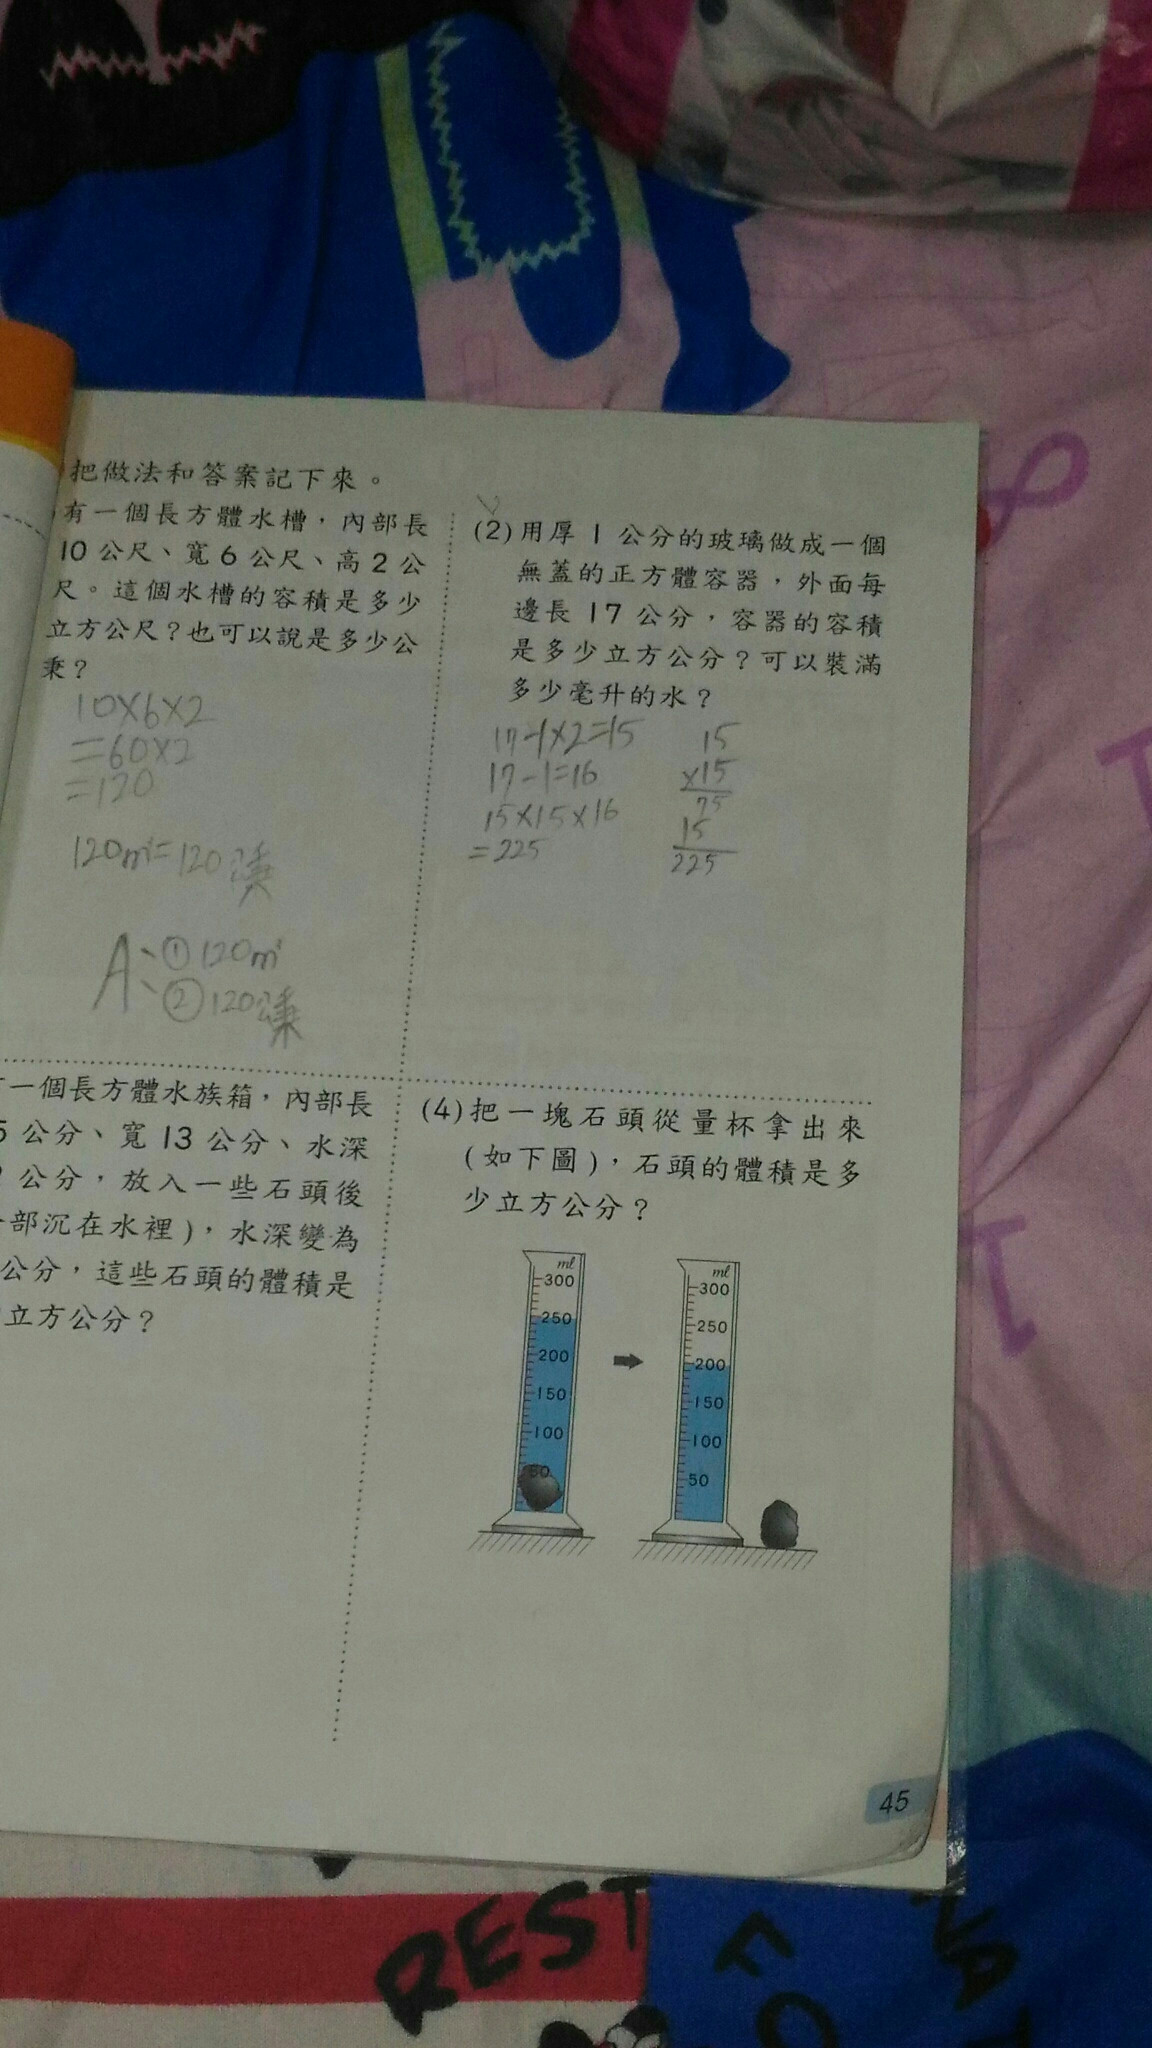 把做法和答案記下來。
有一個長方體水槽，內部長
10公尺、寬6公尺、高2公
尺。這個水槽的容積是多少
立方公尺？也可以說是多少公
秉？
10×6×2
=60×2
=120
120㎥=120
A:①120㎥
②120
(2)用厚1公分的玻璃做成一個
無蓋的正方體容器，外面每
邊長17公分，容器的容積
是多少立方公分？可以裝滿
多少毫升的水？
17-1×2=15
17-1=16
15×15×16
=225
15
×15
75
15
225
一個長方體水族箱，內部長
公分、寬13公分、水深
公分，放入一些石頭後
部沉在水裡)，水深變為
公分，這些石頭的體積是
立方公分？
(4)把一塊石頭從量杯拿出來
(如下圖)，石頭的體積是多
少立方公分？
ml
300
250
200
150
100
50
ml
300
250
200
150
100
50
45
REST